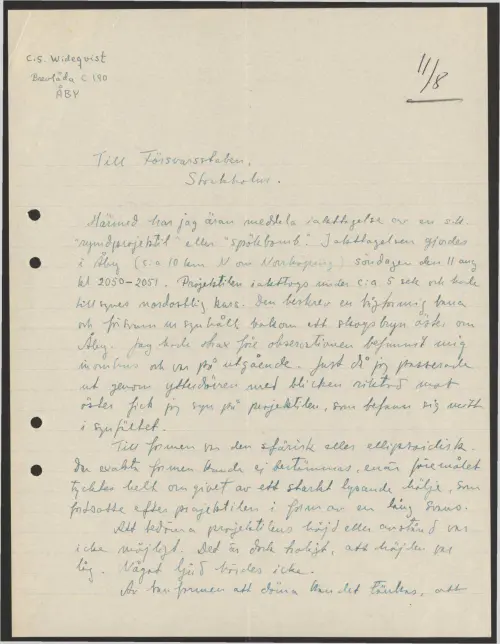 C.S. Wideqvist
Brevlåda C 190
ÅBY
11/8
Till Försvarsstaben,
Stockholm.
Härmed har jag äran meddela iakttagelse av en s.k.
"rymdprojektil" eller "spökbomb". Iakttagelsen gjordes
i Åby (c:a 10 km N om Norrköping) söndagen den 11 aug
kl 2050-2051. Projektilen iakttogs under c:a 5 sek och hade
till synes nordostlig kurs. Den beskrev en bågformig bana
och försvann ur synhåll bakom ett skogsbryn öster om
Åby. Jag hade strax före observationen befunnit mig
inomhus och var på utgående. Just då jag passerade
ut genom ytterdörren med blicken riktad mot
öster fick jag syn på projektilen, som befann sig mitt
i synfältet.
Till formen var den sfärisk eller ellipsoidisk.
Den exakta formen kunde ej bestämmas, enär föremålet
tycktes helt omgivet av ett starkt lysande hölje, som
fortsatte efter projektilen i form av en lång svans.
Att bedöma projektilens höjd eller avstånd var
icke möjligt. Det är dock troligt, att höjden var
låg. Något ljud hördes icke.
Av banformen att döma kan det tänkas, att